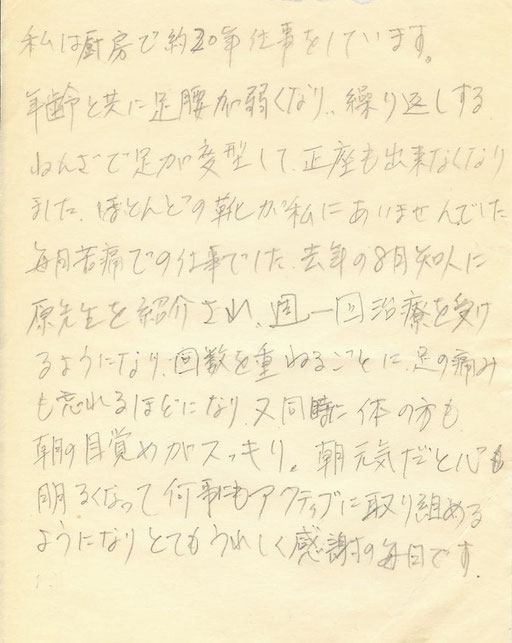 私は厨房で約30年仕事をしています。
年齢と共に足腰が弱くなり、繰り返しする
ねんざで足が変型して、正座も出来なくなり
ました、ほとんどの靴が私にあいませんでした
毎月苦痛での仕事でした、去年の8月知人に
原先生を紹介され、週一回治療を受け
るようになり、回数を重ねるごとに、足の痛み
も忘れるほどになり、又同時に体の方も
朝の目覚めがスッキリ。朝元気だと心も
明るくなって何事にもアクティブに取り組める
ようになりとてもうれしく感謝の毎日です。